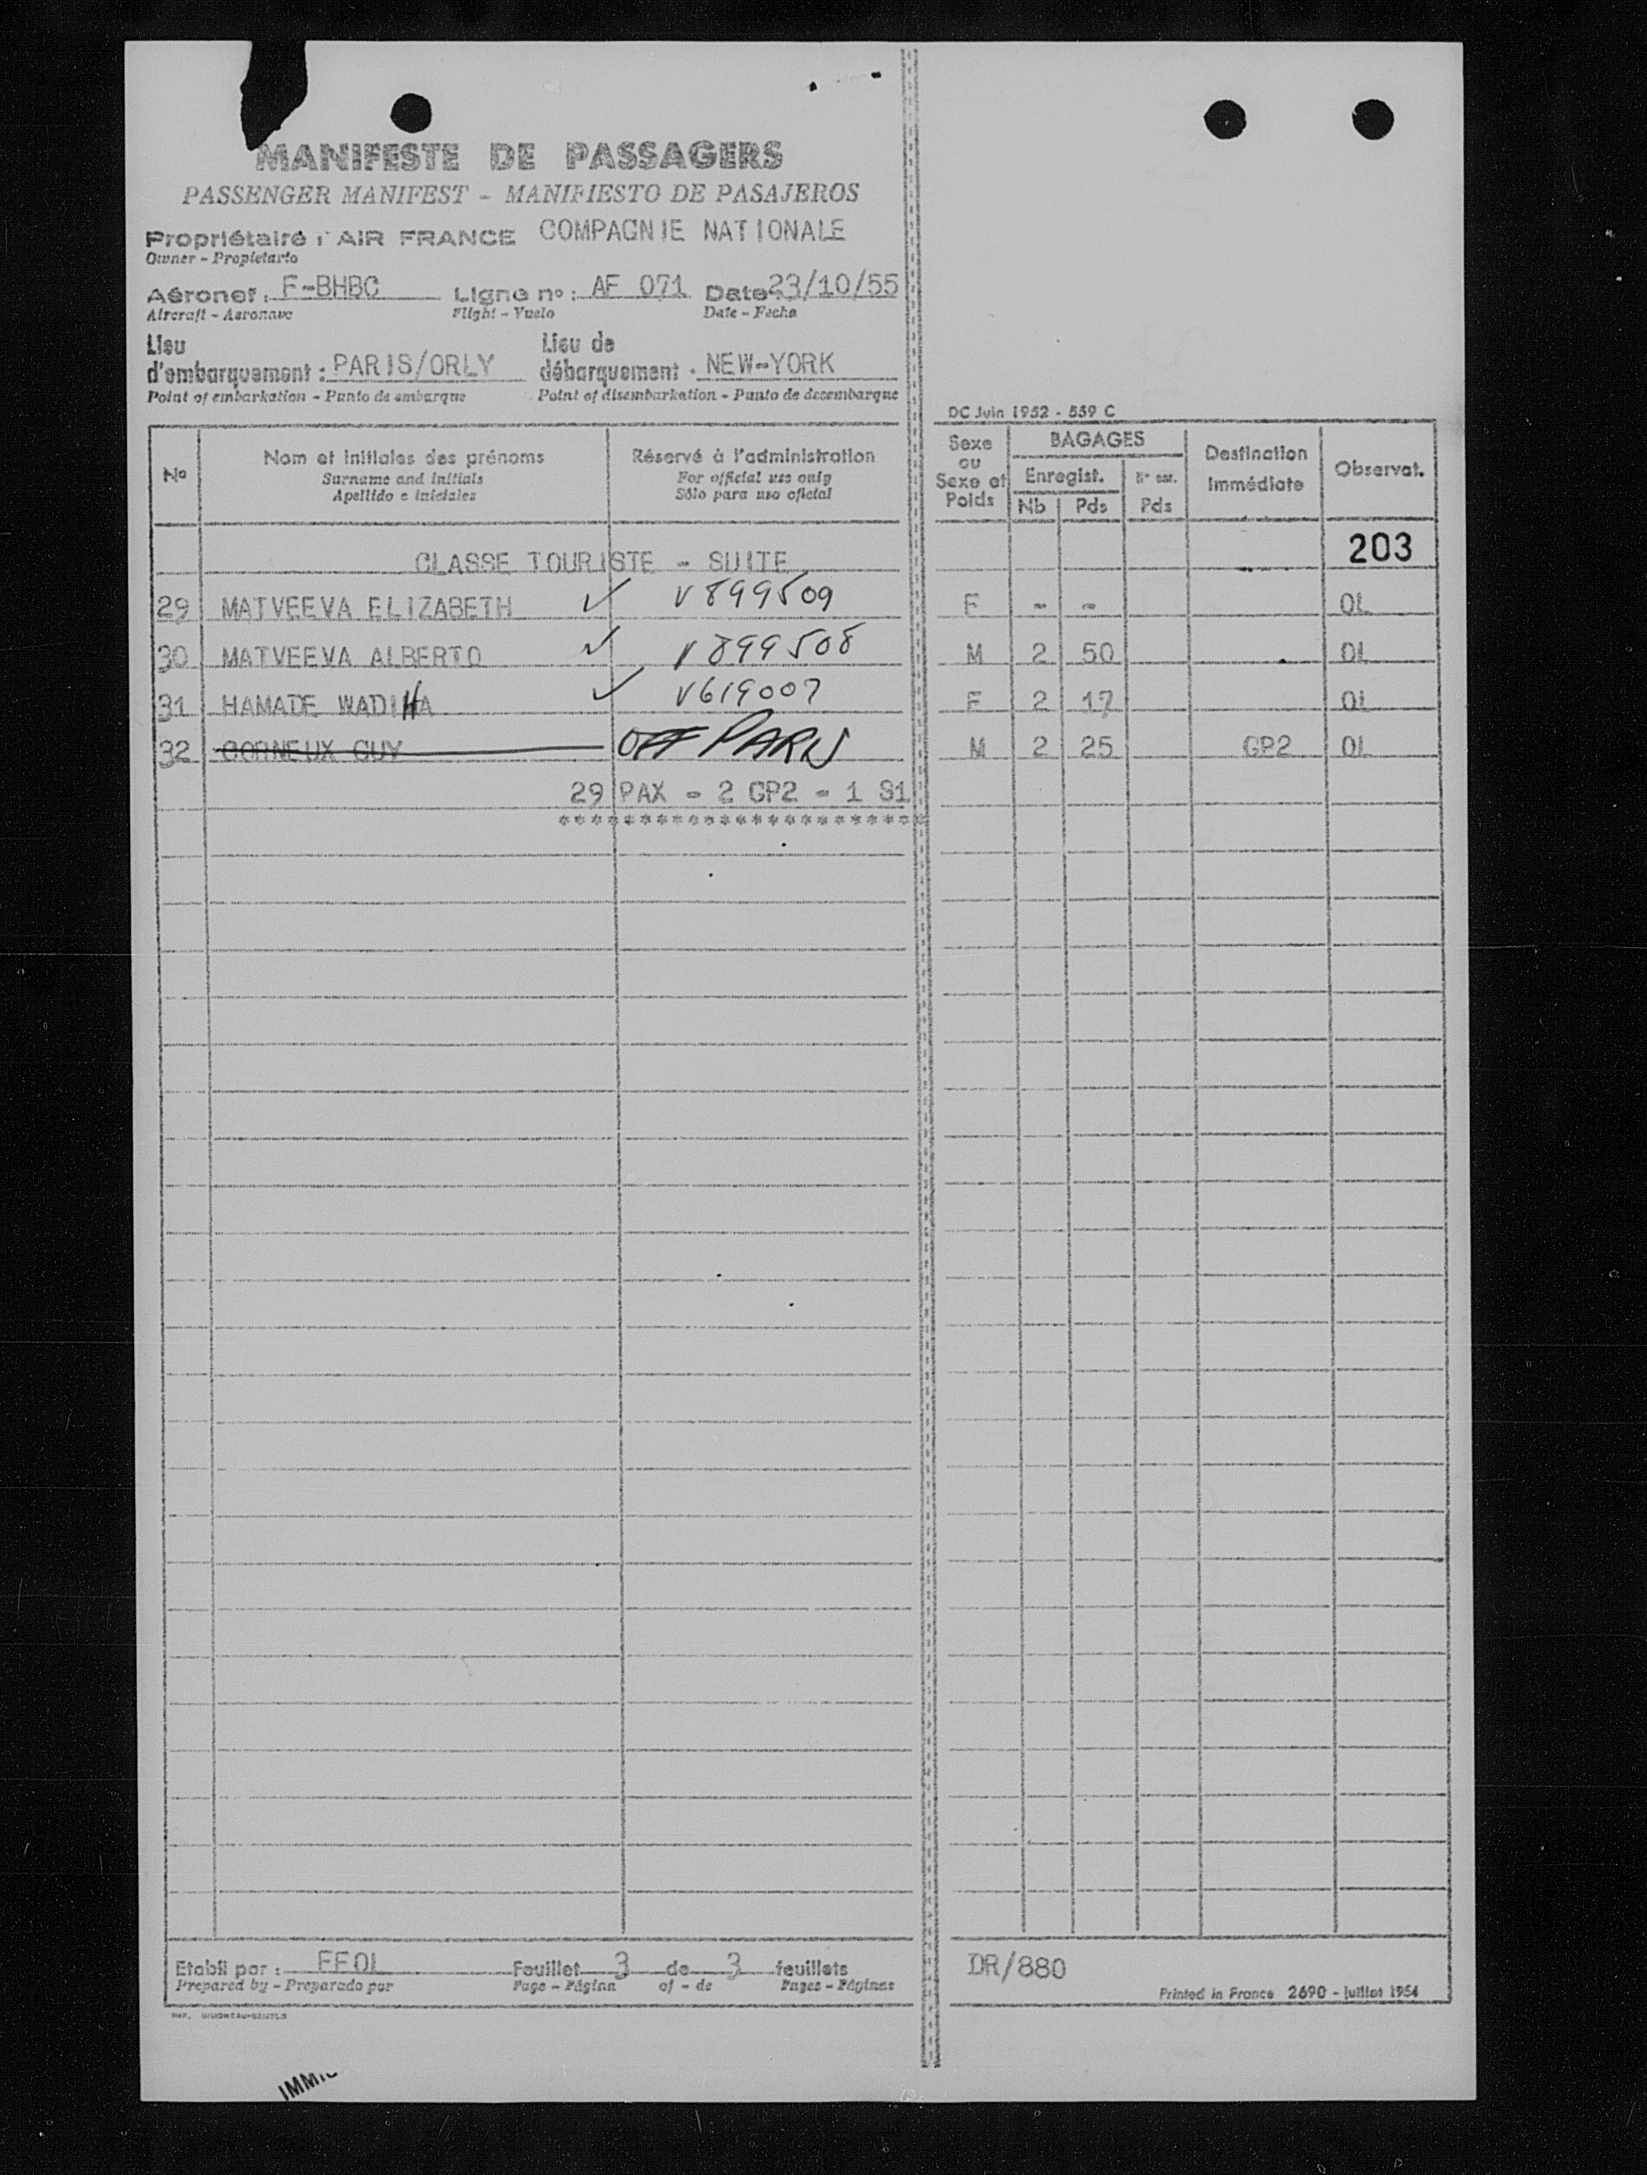 MANIFESTE DE PASSAGERS
PASSENGER MANIFEST - MANIFIESTO DE PASAJEROS
Propriétaire : AIR FRANCE COMPAGNIE NATIONALE
Owner - Propietario
Aéronef : F-BHBC Ligne no : AF 071 Date 23/10/55
Aircraft - Aeronave Flight - Vuelo Date - Fecha
Lieu Lieu de
d'embarquement : PARIS/ORLY débarquement . NEW-YORK
Point of embarkation - Punto de embarque Point of disembarkation - Punto de desembarque
DC Juin 1952 - 559 C
No Nom et initiales des prénoms Réservé à l'administration Sexe ou Sexe et Poids BAGAGES Destination Immédiate Observat.
Surname and initials For official use only Enregist.
Apellido e iniciales Sólo para uso oficial Nb Pds Pds
CLASSE TOURISTE - SUITE 203
29 MATVEEVA ELIZABETH ✓ V899509 F - - OL
30 MATVEEVA ALBERTO ✓ V899508 M 2 50 OL
31 HAMADE WADIHA ✓ V619007 F 2 17 OL
32 CORNEUX GUY OFF PARIS M 2 25 GP2 OL
29 PAX - 2 GP2 - 1 S1
***********************
Etabli par : FFOL Feuillet 3 de 3 feuillets DR/880
Prepared by - Preparado por Page - Página of - de Pages - Páginas
Printed in France 2690 - juillet 1954